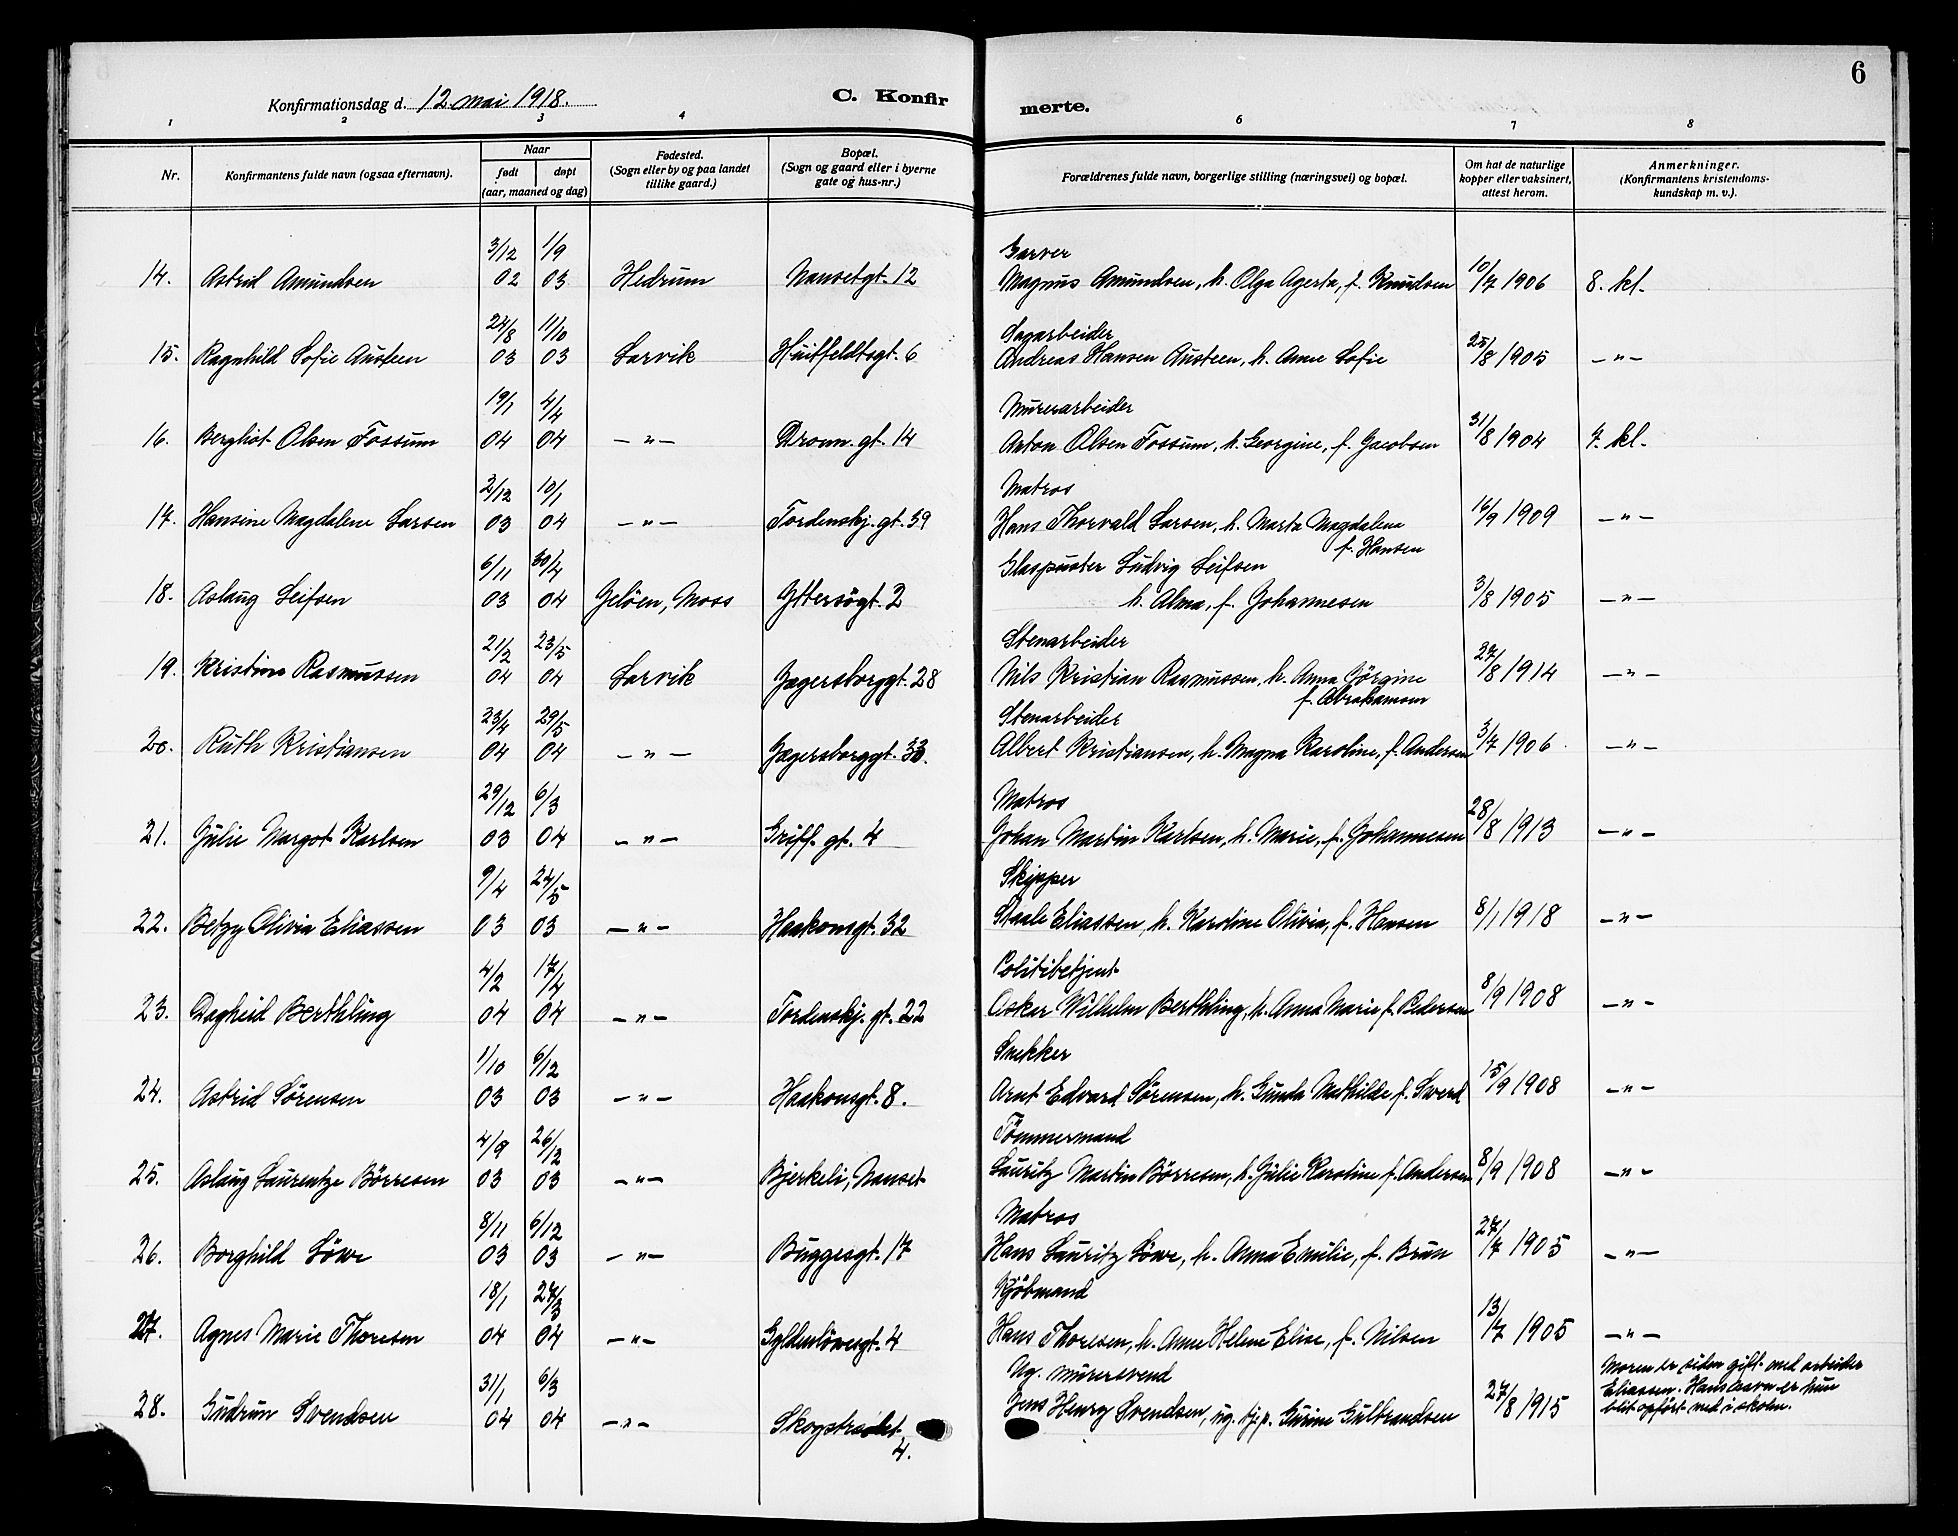 Konfirmationsdag d. 12 mai 1918. C. Konfir merte. 6
1 2 3 4 6 7 8
Nr. Konfirmantens fulde navn (ogsaa efternavn). Naar født døpt (aar, maaned og dag) Fødested. (Sogn eller by og paa landet tillike gaard.) Bopæl. (Sogn og gaard eller i byerne gate og hus-nr.) Forældrenes fulde navn, borgerlige stilling (næringsvei) og bopæl. Om hat de naturlige kopper eller vaksinert, attest herom. Anmerkninger. (Konfirmantens kristendomskundskap m. v.).
3/12 1/9 Garver
14. Astrid Amundsen 02 03 Hedrum Nansetgt. 12 Magnus Amundsen, h. Olga Agerta, f. Knudsen 10/7 1906 8. kl.
24/8 11/10 Sagarbeider
15. Ragnhild Sofie Austeen 03 03 Larvik Huitfeldtsgt. 6 Andreas Hansen Austeen, h. Anne Sofie 25/8 1905 — " —
19/1 4/4 Murerarbeider
16. Bergliot Olsen Fossum 04 04 — " — Dronn. gt. 14 Anton Olsen Fossum, h. Georgine, f. Jacobsen 31/8 1904 7. kl.
2/12 10/1 Matros
17. Hansine Magdalene Larsen 03 04 — " — Tordenskj. gt. 39 Hans Thorvald Larsen, h. Marta Magdalena f. Hansen 16/9 1909 — " —
6/11 30/4 Glaspuster Ludvig Leifsen
18. Aslaug Leifsen 03 04 Geløen, Moss Yttersøgt. 2 h. Alma, f. Johannesen 3/8 1905 — " —
21/2 23/5 Stenarbeider
19. Kristine Rasmussen 04 04 Larvik Jægersborggt. 28 Nils Kristian Rasmussen, h. Anna Jørgine f. Abrahamsen 27/8 1914 — " —
23/4 29/5 Stenarbeider
20. Ruth Kristiansen 04 04 — " — Jægersborggt. 33. Albert Kristiansen, h. Magna Karoline, f. Andersen 3/7 1906. — " —
29/12 6/3 Matros
21. Julie Margot Karlsen 03 04 — " — Griff. gt. 4 Johan Martin Karlsen, h. Marie, f. Johannesen 28/8 1913 — " —
9/4 24/5 Skipper
22. Betzy Olivia Eliassen 03 03 — " — Haakonsgt. 32 Staale Eliassen, h. Karoline Olivia, f. Hansen 8/1 1918 — " —
4/2 17/4 Politibetjent
23. Dagheid Berthling 04 04 — " — Tordenskj. gt. 22 Oskar Wilhelm Berthling, h. Anna Marie f. Pedersen 8/9 1908 — " —
1/10 6/12 Snekker
24. Astrid Sørensen 03 03 — " — Haakonsgt. 8. Arnt Edvard Sørensen, h. Gunda Mathilde f. Sverd 15/9 1908 — " —
4/9 26/12 Tømmermand
25. Aslaug Laurentze Børresen 03 03 — " — Bjerkeli, Nanset Lauritz Martin Børresen, h. Julie Karoline f. Andersen 8/9 1908 — " —
8/11 6/12 Matros
26. Borghild Løwe 03 03 — " — Buggesgt. 17 Hans Lauritz Løwe, h. Anna Emilie, f. Brun 27/7 1905 — " —
18/1 27/3 Kjøbmand
27. Agnes Marie Thoresen 04 04 — " — Gyldenløvesgt. 4 Hans Thoresen, h. Anne Helene Elise, f. Nilsen 13/7 1905 — " —
31/1 6/3 Ug. murersvend Moren er siden gift med arbeider
28. Gudrun Svendsen 04 04 — " — Skogstrødet 4. Jens Henry Svendsen, ug. tj.p. Gurine Gulbrandsen 27/8 1915 Eliassen. Hans navn er hun
blit opført med i skolen.